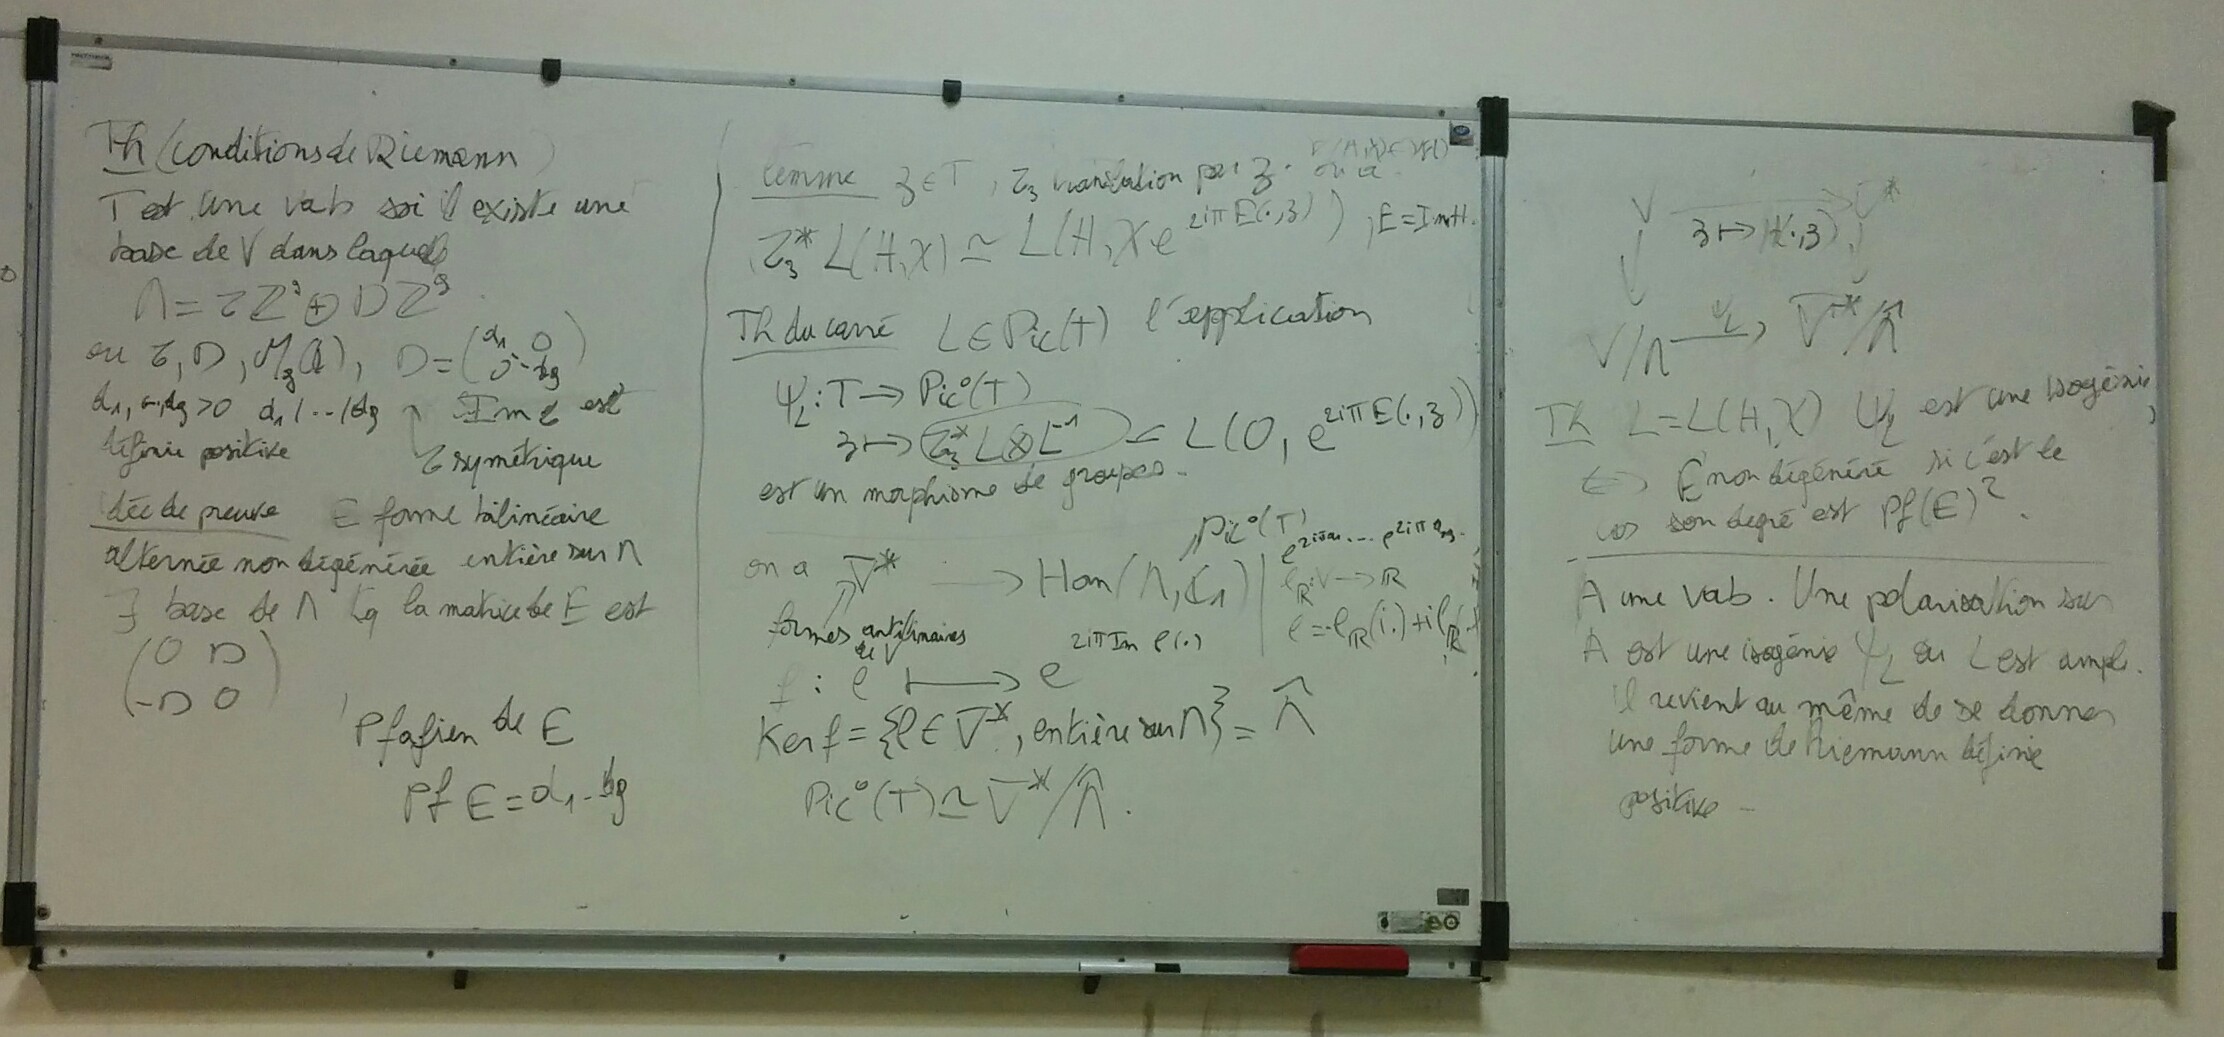 Th (conditions de Riemann)
T est une vab ssi il existe une
base de V dans laquelle
Λ = τZ^g ⊕ DZ^g
où τ, D, M_g(), D = (d_1 0 0 d_g)
d_1, .., d_g > 0 d_1 | ... | d_g Im τ est
définie positive τ symétrique
Idée de preuve E forme bilinéaire
alternée non dégénérée entière sur Λ
∃ base de Λ tq la matrice de E est
(0 D
-D 0)
Pfafien de E
Pf E = d_1 .. d_g
Lemme z ∈ T, τ_z translation par z. on a
τ_z^* L(H,χ) ≃ L(H, χ e^{2iπ E(·,z)}), E = Im H.
Th du carré L ∈ Pic(T) l'application
ψ_L : T → Pic°(T)
z ↦ τ_z^* L ⊗ L^{-1} = L(0, e^{2iπ E(·,z)})
est un morphisme de groupes.
Pic°(T)
on a V̄^* → Hom(Λ, ℂ_1)
ℓ_R : V → ℝ
formes antilinéaires
de V
ℓ = -ℓ_R(i.) + iℓ_R(
f : ℓ ↦ e^{2iπ Im ℓ(·)}
Ker f = {ℓ ∈ V̄^*, entière sur Λ} = Λ̂
Pic°(T) ≃ V̄^*/Λ̂.
V → V̄^*
z ↦ H(·,z)
V/Λ → ψ_L V̄^*/Λ̂
Th L = L(H,χ) ψ_L est une isogénie
⇔ E non dégénéré si c'est le
cas son degré est Pf(E)^2.
A une vab. Une polarisation sur
A est une isogénie ψ_L où L est ample.
il revient au même de se donner
une forme de Riemann définie
positive -